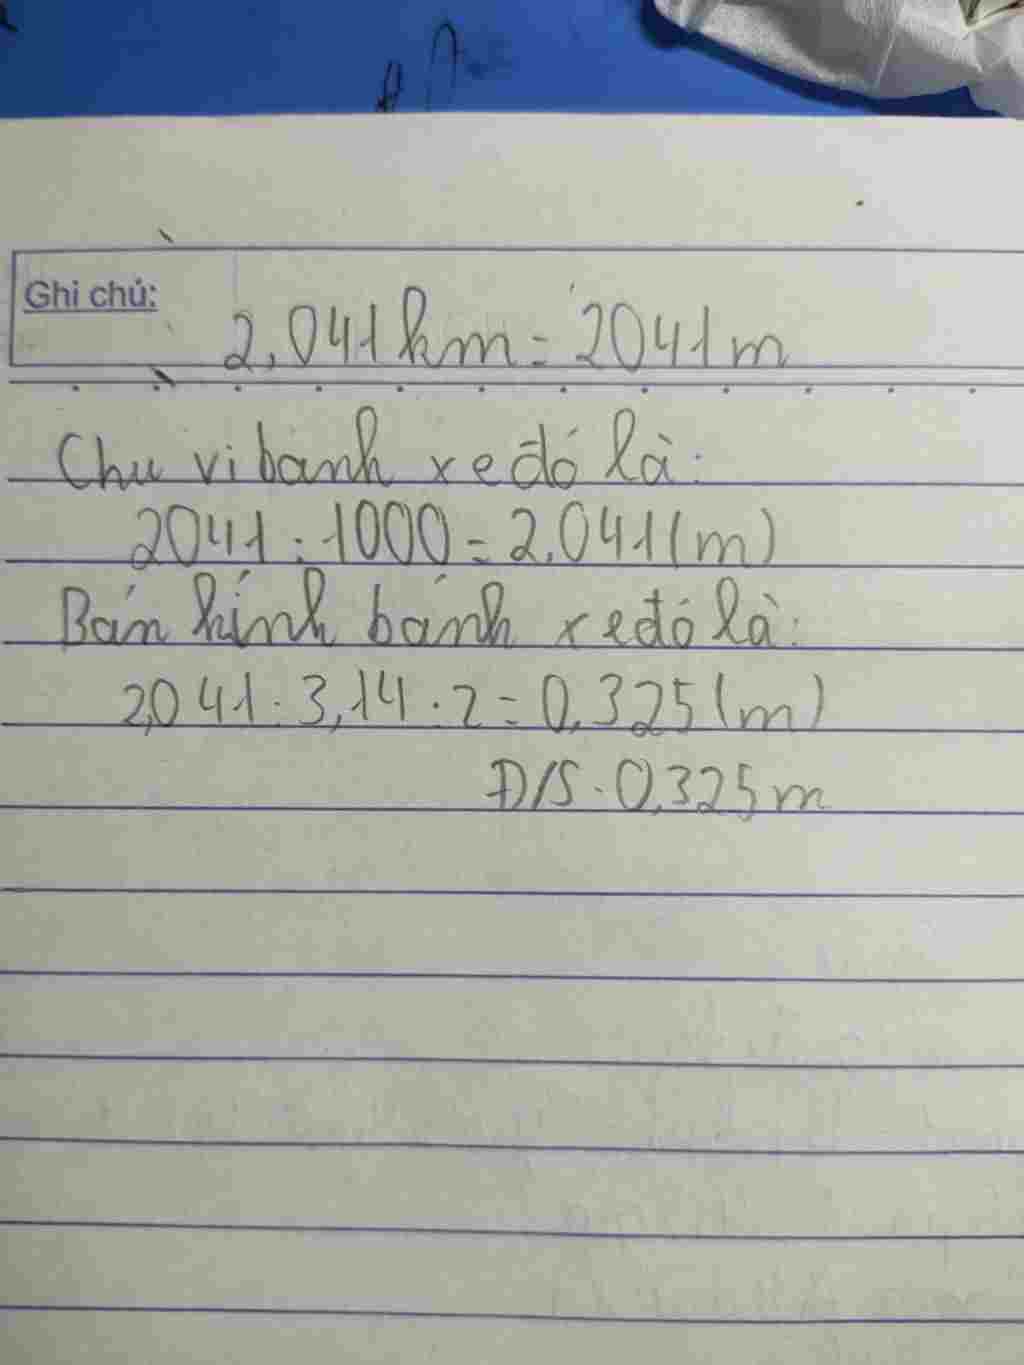 Ghi chú:
2,041 km = 2041 m
Chu vi bánh xe đó là:
2041 : 1000 = 2,041 (m)
Bán kính bánh xe đó là:
2,041 : 3,14 : 2 = 0,325 (m)
Đ/S: 0,325 m